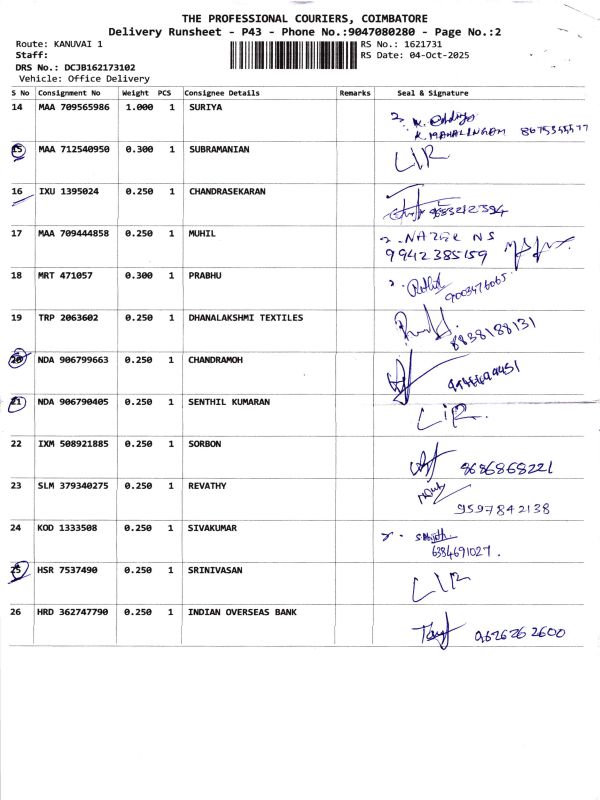 THE PROFESSIONAL COURIERS, COIMBATORE
Delivery Runsheet - P43 - Phone No.:9047080280 - Page No.:2
Route: KANUVAI 1 RS No.: 1621731
Staff: RS Date: 04-Oct-2025
DRS No.: DCJB162173102
Vehicle: Office Delivery
S No Consignment No Weight PCS Consignee Details Remarks Seal & Signature
14 MAA 709565986 1.000 1 SURIYA
K. MAHALINGAM
15 MAA 712540950 0.300 1 SUBRAMANIAN LIR
16 IXU 1395024 0.250 1 CHANDRASEKARAN
17 MAA 709444858 0.250 1 MUHIL NAZER NS
9942385159
18 MRT 471057 0.300 1 PRABHU
9003476065
19 TRP 2063602 0.250 1 DHANALAKSHMI TEXTILES
8838188131
20 NDA 906799663 0.250 1 CHANDRAMOH
21 NDA 906790405 0.250 1 SENTHIL KUMARAN LIR.
22 IXM 508921885 0.250 1 SORBON
8686868221
23 SLM 379340275 0.250 1 REVATHY
9597842138
24 KOD 1333508 0.250 1 SIVAKUMAR
6384691027.
25 HSR 7537490 0.250 1 SRINIVASAN LIR
26 HRD 362747790 0.250 1 INDIAN OVERSEAS BANK
9626262600